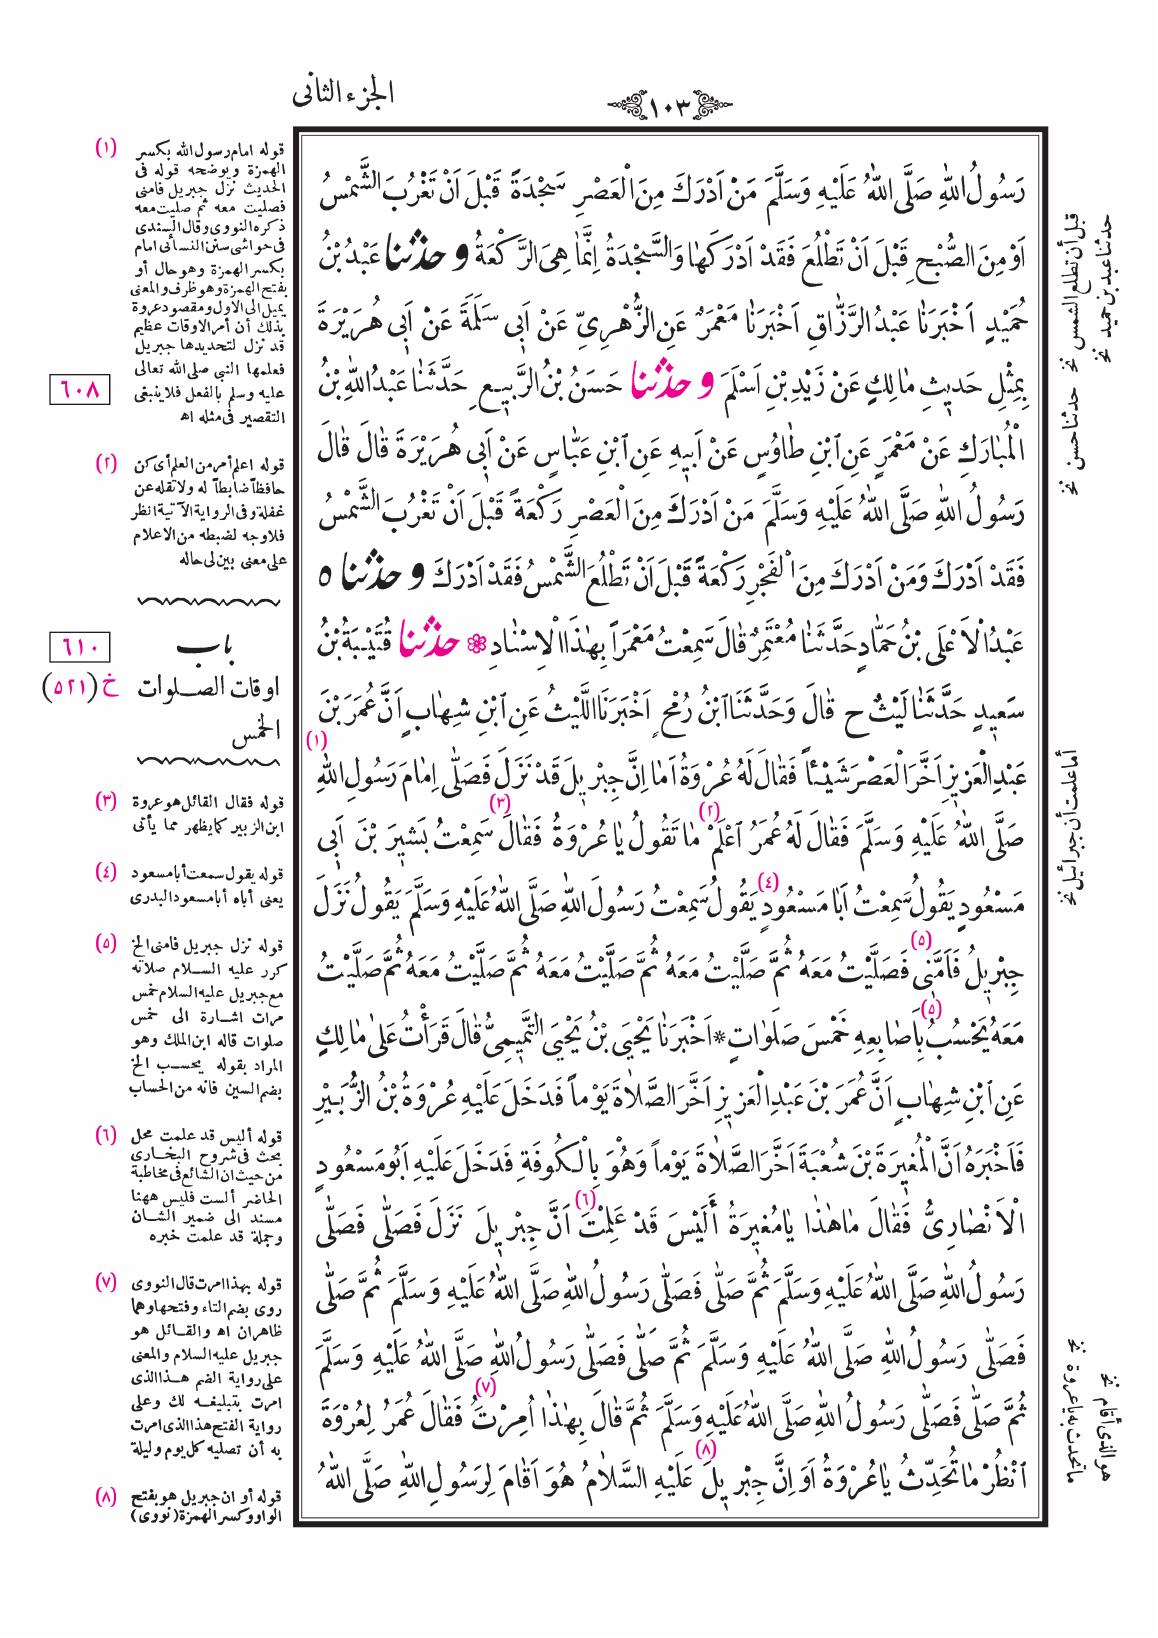 ١٠٣
الجزء الثانى
رَسُولُ اللّٰهِ صَلَّى اللّٰهُ عَلَيْهِ وَسَلَّمَ مَنْ اَدْرَكَ مِنَ الْعَصْرِ سَجْدَةً قَبْلَ اَنْ تَغْرُبَ الشَّمْسُ
اَوْ مِنَ الصُّبْحِ قَبْلَ اَنْ تَطْلُعَ فَقَدْ اَدْرَكَهَا وَالسَّجْدَةُ اِنَّمَا هِىَ الرَّكْعَةُ وحدثنا عَبْدُ بْنُ
حُمَيْدٍ اَخْبَرَنَا عَبْدُ الرَّزَّاقِ اَخْبَرَنَا مَعْمَرٌ عَنِ الزُّهْرِىِّ عَنْ اَبِى سَلَمَةَ عَنْ اَبِى هُرَيْرَةَ
بِمِثْلِ حَدِيثِ مَالِكٍ عَنْ زَيْدِ بْنِ اَسْلَمَ وحدثنا حَسَنُ بْنُ الرَّبِيعِ حَدَّثَنَا عَبْدُ اللّٰهِ بْنُ
الْمُبَارَكِ عَنْ مَعْمَرٍ عَنِ ابْنِ طَاوُسٍ عَنْ اَبِيهِ عَنِ ابْنِ عَبَّاسٍ عَنْ اَبِى هُرَيْرَةَ قَالَ قَالَ
رَسُولُ اللّٰهِ صَلَّى اللّٰهُ عَلَيْهِ وَسَلَّمَ مَنْ اَدْرَكَ مِنَ الْعَصْرِ رَكْعَةً قَبْلَ اَنْ تَغْرُبَ الشَّمْسُ
فَقَدْ اَدْرَكَ وَمَنْ اَدْرَكَ مِنَ الْفَجْرِ رَكْعَةً قَبْلَ اَنْ تَطْلُعَ الشَّمْسُ فَقَدْ اَدْرَكَ وحدثناه
عَبْدُ الْاَعْلَى بْنُ حَمَّادٍ حَدَّثَنَا مُعْتَمِرٌ قَالَ سَمِعْتُ مَعْمَراً بِهٰذَا الْاِسْنَادِ ❁ حدثنا قُتَيْبَةُ بْنُ
سَعِيدٍ حَدَّثَنَا لَيْثٌ ح قَالَ وَحَدَّثَنَا ابْنُ رُمْحٍ اَخْبَرَنَا اللَّيْثُ عَنِ ابْنِ شِهَابٍ اَنَّ عُمَرَ بْنَ
عَبْدِ الْعَزِيزِ اَخَّرَ الْعَصْرَ شَيْئاً فَقَالَ لَهُ عُرْوَةُ اَمَا اِنَّ جِبْرِيلَ قَدْ نَزَلَ فَصَلَّى اِمَامَ رَسُولِ اللّٰهِ (١)
صَلَّى اللّٰهُ عَلَيْهِ وَسَلَّمَ فَقَالَ لَهُ عُمَرُ اعْلَمْ (٢) مَا تَقُولُ يَا عُرْوَةُ فَقَالَ (٣) سَمِعْتُ بَشِيرَ بْنَ اَبِى
مَسْعُودٍ يَقُولُ سَمِعْتُ اَبَا مَسْعُودٍ (٤) يَقُولُ سَمِعْتُ رَسُولَ اللّٰهِ صَلَّى اللّٰهُ عَلَيْهِ وَسَلَّمَ يَقُولُ نَزَلَ
جِبْرِيلُ فَاَمَّنِى (٥) فَصَلَّيْتُ مَعَهُ ثُمَّ صَلَّيْتُ مَعَهُ ثُمَّ صَلَّيْتُ مَعَهُ ثُمَّ صَلَّيْتُ مَعَهُ ثُمَّ صَلَّيْتُ
مَعَهُ يَحْسُبُ (٥) بِاَصَابِعِهِ خَمْسَ صَلَوَاتٍ * اَخْبَرَنَا يَحْيَى بْنُ يَحْيَى التَّمِيمِىُّ قَالَ قَرَأْتُ عَلَى مَالِكٍ
عَنِ ابْنِ شِهَابٍ اَنَّ عُمَرَ بْنَ عَبْدِ الْعَزِيزِ اَخَّرَ الصَّلَاةَ يَوْماً فَدَخَلَ عَلَيْهِ عُرْوَةُ بْنُ الزُّبَيْرِ
فَاَخْبَرَهُ اَنَّ الْمُغِيرَةَ بْنَ شُعْبَةَ اَخَّرَ الصَّلَاةَ يَوْماً وَهُوَ بِالْكُوفَةِ فَدَخَلَ عَلَيْهِ اَبُو مَسْعُودٍ
الْاَنْصَارِىُّ فَقَالَ مَا هٰذَا يَا مُغِيرَةُ أَلَيْسَ قَدْ عَلِمْتَ (٦) اَنَّ جِبْرِيلَ نَزَلَ فَصَلَّى فَصَلَّى
رَسُولُ اللّٰهِ صَلَّى اللّٰهُ عَلَيْهِ وَسَلَّمَ ثُمَّ صَلَّى فَصَلَّى رَسُولُ اللّٰهِ صَلَّى اللّٰهُ عَلَيْهِ وَسَلَّمَ ثُمَّ صَلَّى
فَصَلَّى رَسُولُ اللّٰهِ صَلَّى اللّٰهُ عَلَيْهِ وَسَلَّمَ ثُمَّ صَلَّى فَصَلَّى رَسُولُ اللّٰهِ صَلَّى اللّٰهُ عَلَيْهِ وَسَلَّمَ
ثُمَّ صَلَّى فَصَلَّى رَسُولُ اللّٰهِ صَلَّى اللّٰهُ عَلَيْهِ وَسَلَّمَ ثُمَّ قَالَ بِهٰذَا اُمِرْتُ (٧) فَقَالَ عُمَرُ لِعُرْوَةَ
انْظُرْ مَا تُحَدِّثُ يَا عُرْوَةُ اَوَ اِنَّ (٨) جِبْرِيلَ عَلَيْهِ السَّلَامُ هُوَ اَقَامَ لِرَسُولِ اللّٰهِ صَلَّى اللّٰهُ
قبل أن تطلع الشمس نخ
حدثنا عبد بن حميد نخ
حدثنا حسن نخ
أما علمت أن جبرائيل نخ
ما تحدث به يا عروة نخ
هو الذى أقام نخ
(١) قوله امام رسول الله بكسر
الهمزة ويوضحه قوله فى
الحديث نزل جبريل فامنى
فصليت معه ثم صليت معه
ذكره النووى وقال السندى
فى حواشى سنن النسائى امام
بكسر الهمزة وهو حال أو
بفتح الهمزة وهو ظرف والمعنى
يميل الى الاول ومقصود عروة
بذلك أن أمر الاوقات عظيم
قد نزل لتحديدها جبريل
فعلمها النبي صلى الله تعالى
عليه وسلم بالفعل فلا ينبغى
التقصير فى مثله اه
٦٠٨
(٢) قوله اعلم أمر من العلم أى كن
حافظاً ضابطاً له ولا تقله عن
غفلة وفى الرواية الآتية انظر
فلا وجه لضبطه من الاعلام
على معنى بين لى حاله
باب
٦١٠
اوقات الصلوات
خ (٥٢١)
الخمس
(٣) قوله فقال القائل هو عروة
ابن الزبير كما يظهر مما يأتى
(٤) قوله يقول سمعت أبا مسعود
يعنى أباه أبا مسعود البدرى
(٥) قوله نزل جبريل فامنى الخ
كرر عليه السلام صلاته
مع جبريل عليه السلام خمس
مرات اشارة الى خمس
صلوات قاله ابن الملك وهو
المراد بقوله يحسب الخ
بضم السين فانه من الحساب
(٦) قوله أليس قد علمت محل
بحث فى شروح البخارى
من حيث ان الشائع فى مخاطبة
الحاضر ألست فليس ههنا
مسند الى ضمير الشان
وجملة قد علمت خبره
(٧) قوله بهذا امرت قال النووى
روى بضم التاء وفتحها وهما
ظاهران اه والقائل هو
جبريل عليه السلام والمعنى
على رواية الضم هذا الذى
امرت بتبليغه لك وعلى
رواية الفتح هذا الذى امرت
به أن تصليه كل يوم وليلة
(٨) قوله أو ان جبريل هو بفتح
الواو وكسر الهمزة (نووى)